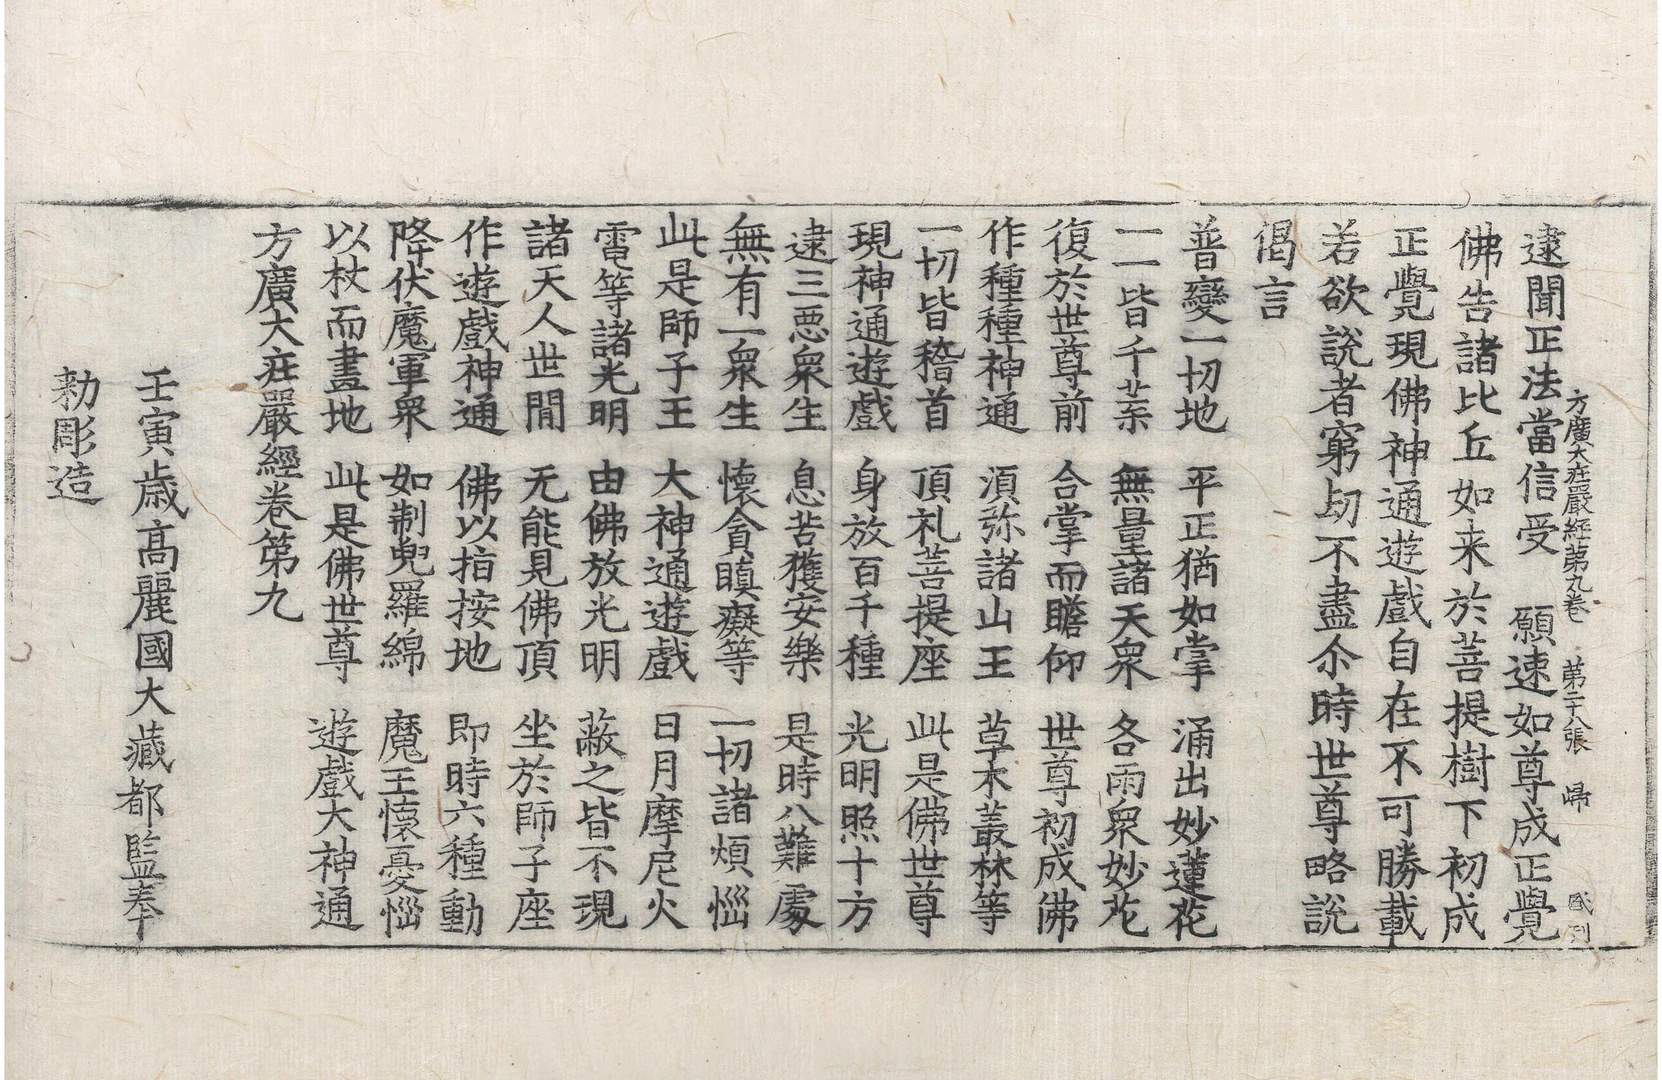 方廣大莊嚴經第九卷 第二十八張 歸
逮聞正法當信受 願速如尊成正覺
佛告諸比丘如来於菩提樹下初成
正覺現佛神通遊戲自在不可勝載
若欲說者窮劫不盡尒時世尊略說
偈言
普變一切地 平正猶如掌 涌出妙蓮花
一一皆千葉 無量諸天衆 各雨衆妙花
復於世尊前 合掌而瞻仰 世尊初成佛
作種種神通 湏弥諸山王 草木叢林等
一切皆稽首 頂礼菩提座 此是佛世尊
現神通遊戲 身放百千種 光明照十方
逮三惡衆生 息苦獲安樂 是時八難處
無有一衆生 懷貪瞋癡等 一切諸煩惱
此是師子王 大神通遊戲 日月摩尼火
電等諸光明 由佛放光明 蔽之皆不現
諸天人世間 无能見佛頂 坐於師子座
作遊戲神通 佛以指按地 即時六種動
降伏魔軍衆 如制兜羅綿 魔王懷憂惱
以杖而畫地 此是佛世尊 遊戲大神通
方廣大莊嚴經卷第九
壬寅歲高麗國大藏都監奉
勅彫造